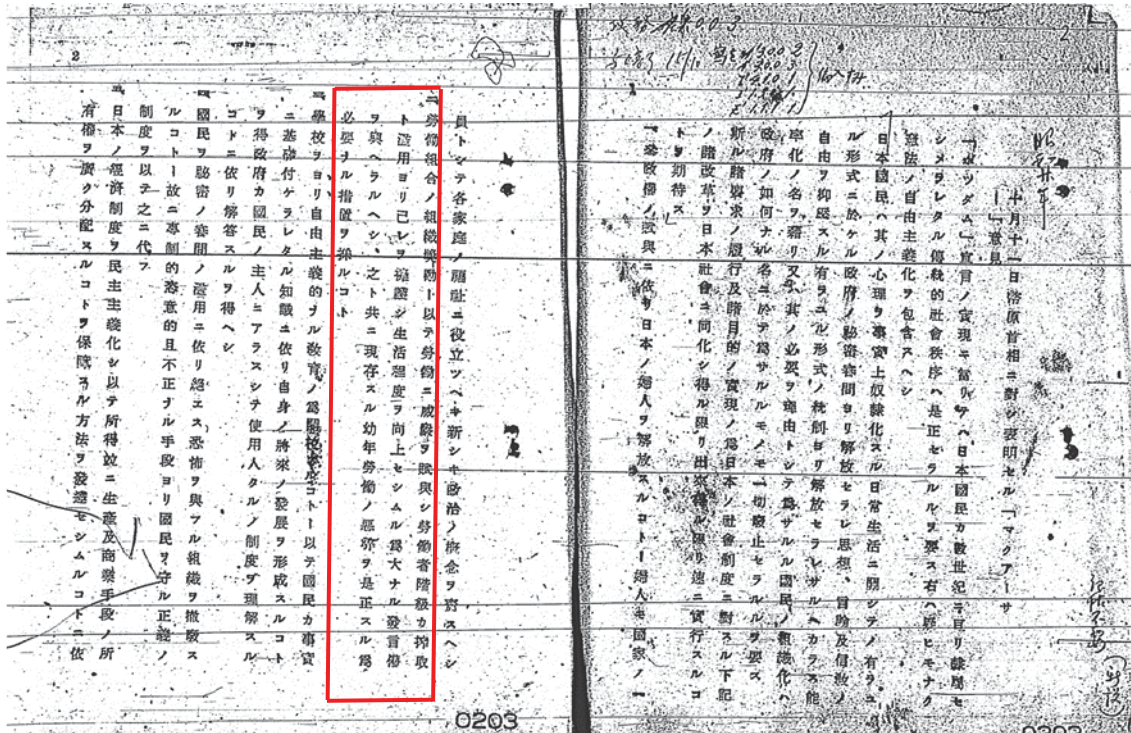 2
1
昭和廿年
十月十一日幣原首相ニ對シ表明セル「マクアーサ
ー」意見
「ポツダム」宣言ノ實現ニ當リテハ日本國民カ數世紀ニ亘リ隷屬セ
シメラレタル傳統的社會秩序ハ是正セラルルヲ要ス右ハ疑ヒモナク
憲法ノ自由主義化ヲ包含スヘシ
日本國民ハ其ノ心理ヲ事實上奴隷化スル日常生活ニ關シテノ有ラユ
ル形式ニ於ケル政府ノ秘密審問ヨリ解放セラレ思想、言論及信教ノ
自由ヲ抑壓スル有ラユル形式ノ統制ヨリ解放セラレサルヘカラス能
率化ノ名ヲ藉リ又ハ其ノ必要ヲ理由トシテ爲サルル國民ノ組織化ハ
政府ノ如何ナル名ニ於テ爲サルルモノモ一切廢止セラルルヲ要ス
斯ル諸要求ノ履行及諸目的ノ實現ノ爲日本ノ社會制度ニ對スル下記
ノ諸改革ヲ日本社會ニ同化シ得ル限リ出來得ル限リ速ニ實行スルコ
トヲ期待ス
一、參政權ノ賦與ニ依リ日本ノ婦人ヲ解放スルコト－婦人モ國家ノ一
0203
2
員トシテ各家庭ノ福祉ニ役立ツヘキ新シキ政治ノ概念ヲ齎スヘシ
二、勞働組合ノ組織奬勵－以テ勞働ニ威嚴ヲ賦與シ勞働者階級カ搾取
ト濫用ヨリ己レヲ擁護シ生活程度ヲ向上セシムル爲大ナル發言權
ヲ與ヘラルヘシ、之ト共ニ現存スル幼年勞働ノ惡弊ヲ是正スル爲
必要ナル措置ヲ採ルコト
三、學校ヲヨリ自由主義的ナル敎育ノ爲開校スルコト－以テ國民カ事實
ニ基礎付ケラレタル知識ニ依リ自身ノ將來ノ發展ヲ形成スルコト
ヲ得政府カ國民ノ主人ニアラスシテ使用人タルノ制度ヲ理解スル
コトニ依リ解答スルヲ得ヘシ
四、國民ヲ秘密ノ審問ノ濫用ニ依リ絕エス恐怖ヲ與フル組織ヲ撤廢ス
ルコト－故ニ專制的恣意的且不正ナル手段ヨリ國民ヲ守ル正義ノ
制度ヲ以テ之ニ代フ
五、日本ノ經濟制度ヲ民主主義化シ以テ所得竝ニ生產及商業手段ノ所
有權ヲ廣ク分配スルコトヲ保障スル方法ヲ發達セシムルコトニ依
0203